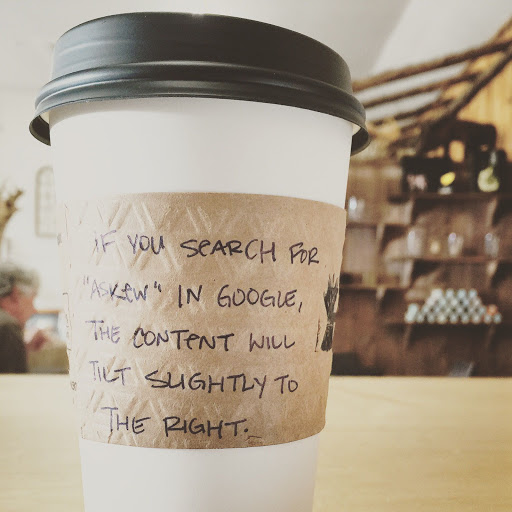 IF YOU SEARCH FOR
"ASKEW" IN GOOGLE,
THE CONTENT WILL
TILT SLIGHTLY TO
THE RIGHT.